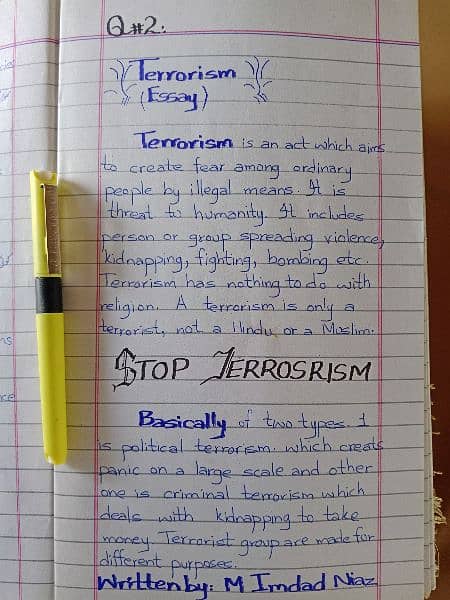 Q#2:
Terrorism
(Essay)
Terrorism is an act which aims
to create fear among ordinary
people by illegal means. It is
threat to humanity. It includes
person or group spreading violence,
kidnapping, fighting, bombing etc.
Terrorism has nothing to do with
religion. A terrorism is only a
terrorist, not a Hindu or a Moslim.
STOP TERROSRISM
Basically of two types. 1
is political terrorism. which creats
panic on a large scale and other
one is criminal terrorism which
deals with kidnapping to take
money. Terrorist group are made for
different purposes.
Written by: M Imdad Niaz